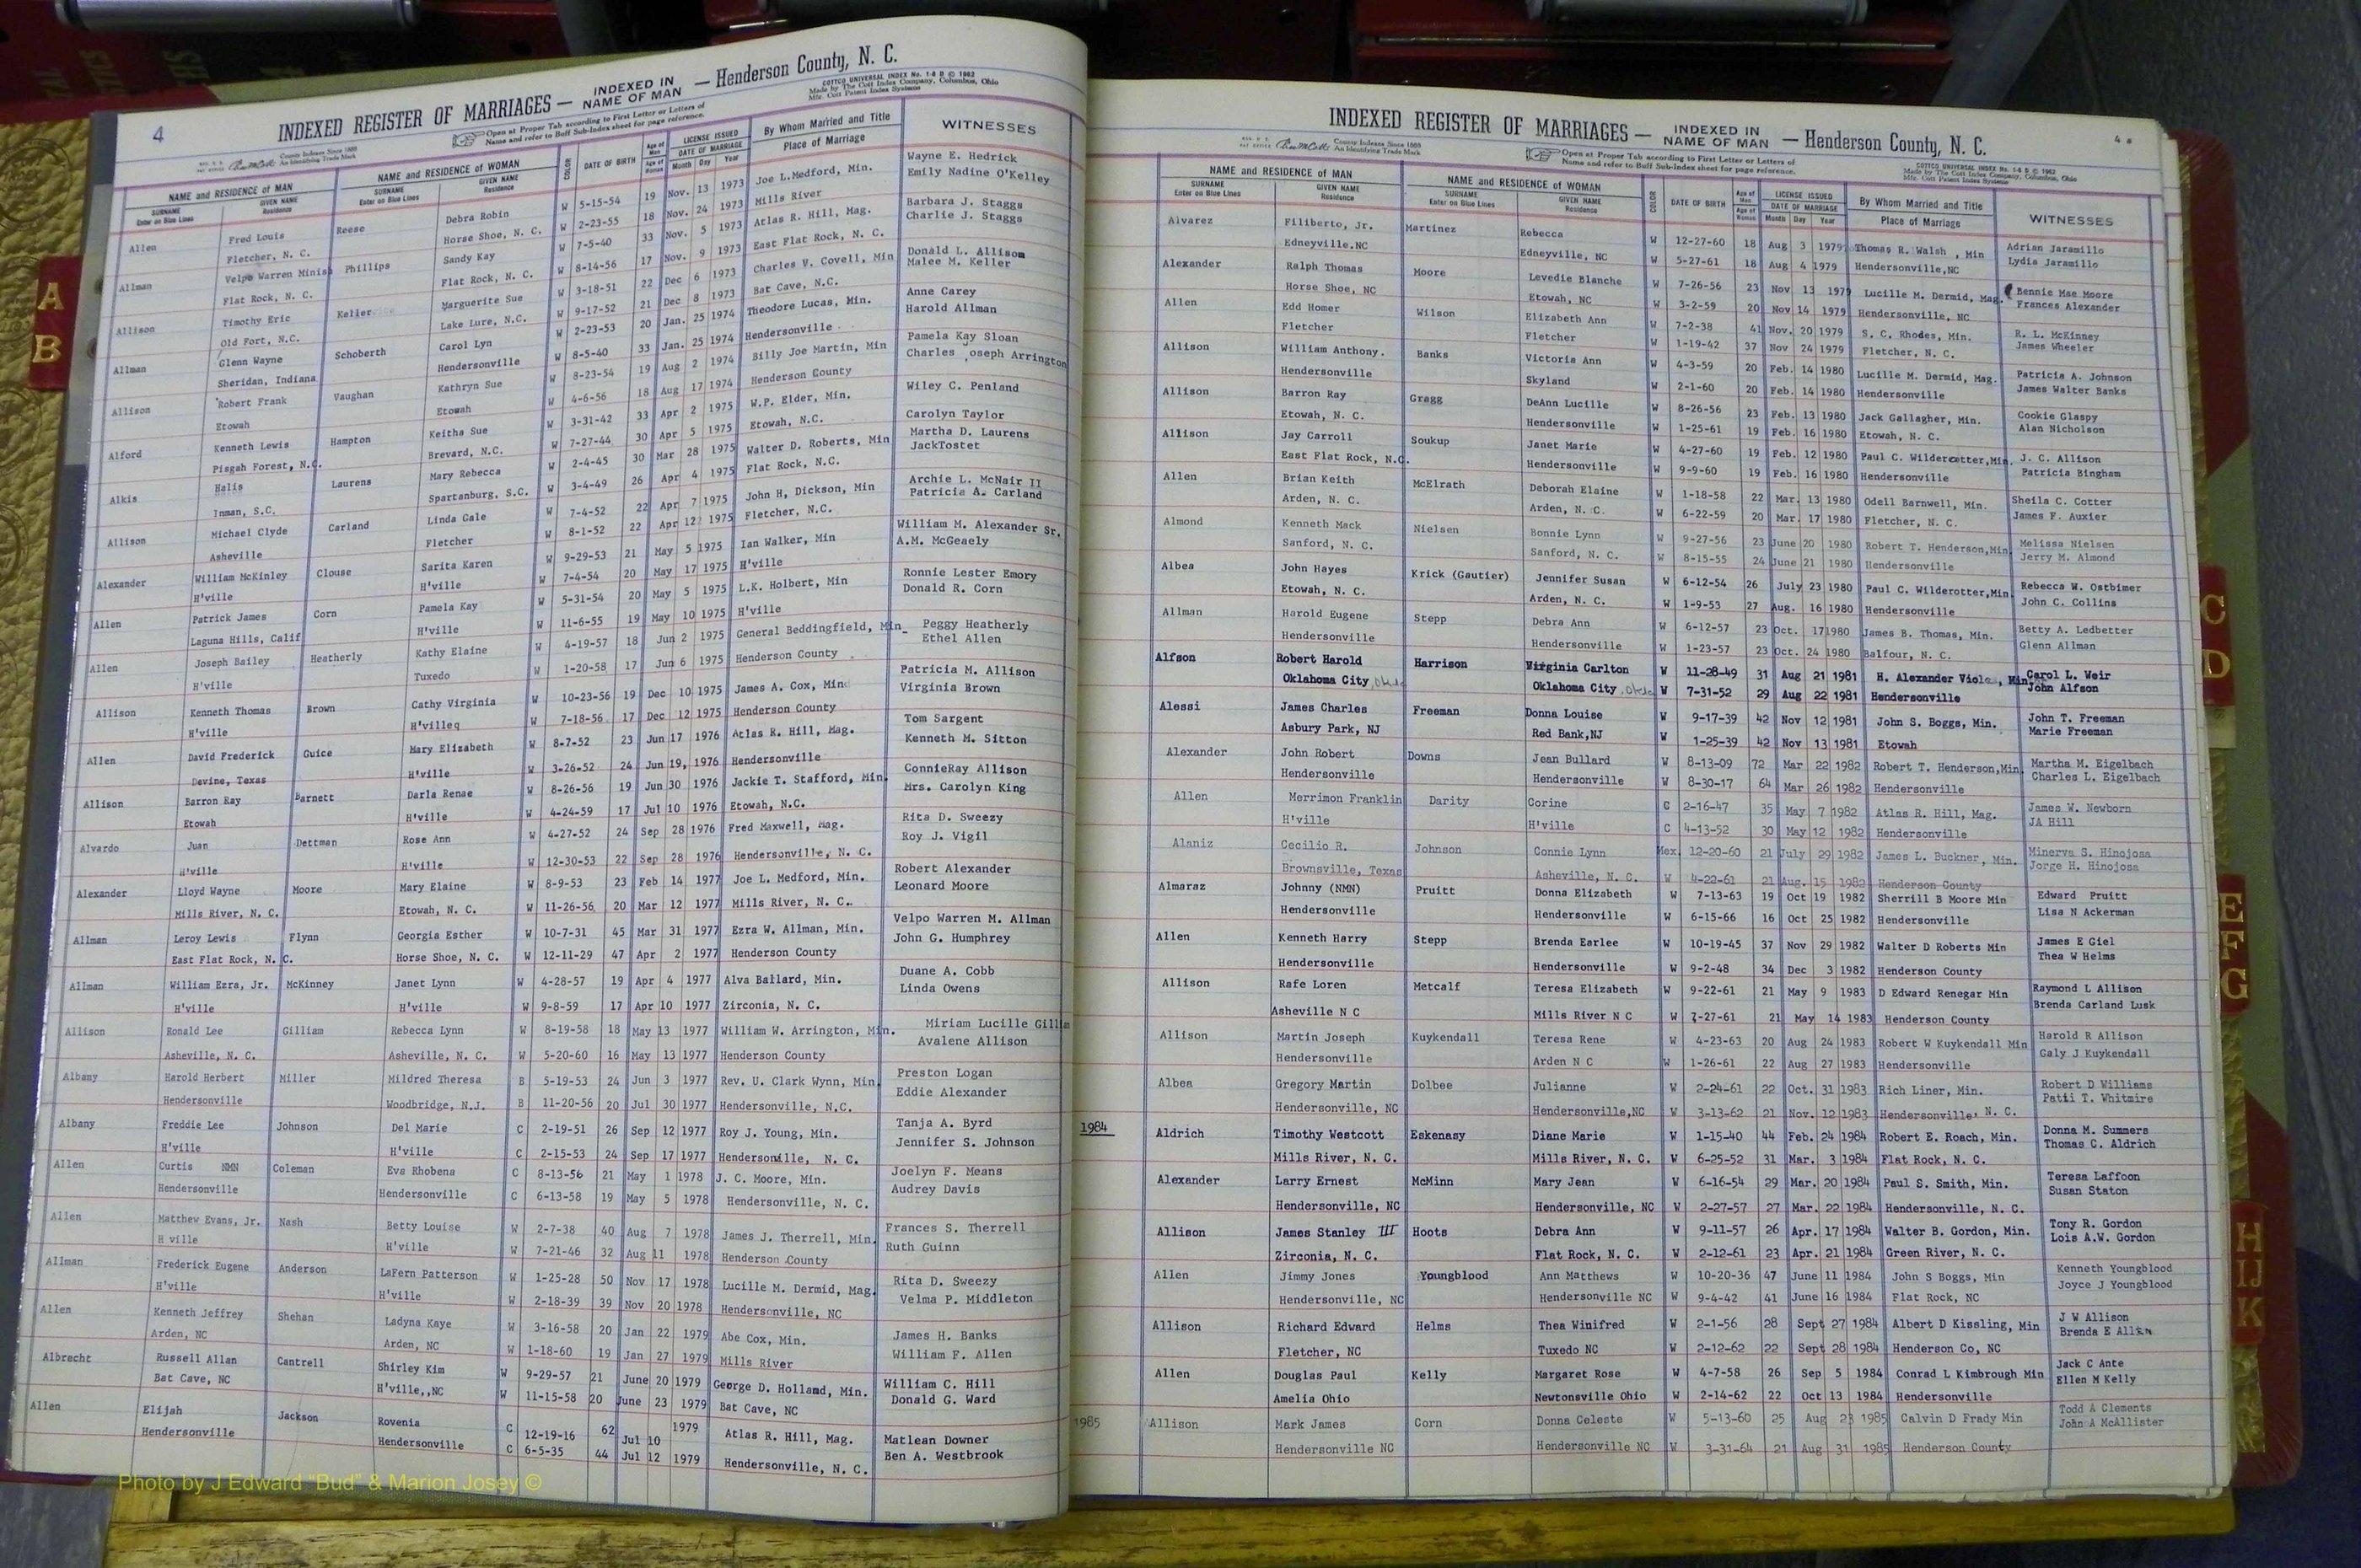 4
INDEXED REGISTER OF MARRIAGES — INDEXED IN NAME OF MAN — Henderson County, N. C.
Open at Proper Tab according to First Letter or Letters of
Name and refer to Buff Sub-Index sheet for page reference.
COTTCO UNIVERSAL INDEX No. 1-8 D © 1962
Made by The Cott Index Company, Columbus, Ohio
NAME and RESIDENCE of MAN NAME and RESIDENCE of WOMAN COLOR DATE OF BIRTH Age of Man LICENSE ISSUED By Whom Married and Title WITNESSES
SURNAME GIVEN NAME SURNAME GIVEN NAME Age of Woman DATE OF MARRIAGE Place of Marriage
Enter on Blue Lines Residence Enter on Blue Lines Residence Month Day Year
Allen Fred Louis Reese Debra Robin W 5-15-54 19 Nov. 13 1973 Joe L. Medford, Min. Wayne E. Hedrick
Fletcher, N. C. Horse Shoe, N. C. W 2-23-55 18 Nov. 24 1973 Mills River Emily Nadine O'Kelley
Allman Velpo Warren Minis Phillips Sandy Kay W 7-5-40 33 Nov. 5 1973 Atlas R. Hill, Mag. Barbara J. Staggs
Flat Rock, N. C. Flat Rock, N. C. W 8-14-56 17 Nov. 9 1973 East Flat Rock, N. C. Charlie J. Staggs
Allison Timothy Eric Keller Marguerite Sue W 3-18-51 22 Dec 6 1973 Charles V. Covell, Min Donald L. Allison
Old Fort, N.C. Lake Lure, N.C. W 9-17-52 21 Dec 8 1973 Bat Cave, N.C. Malee M. Keller
Allman Glenn Wayne Schoberth Carol Lyn W 2-23-53 20 Jan. 25 1974 Theodore Lucas, Min. Anne Carey
Sheridan, Indiana Hendersonville W 8-5-40 33 Jan. 25 1974 Hendersonville Harold Allman
Allison Robert Frank Vaughan Kathryn Sue W 8-23-54 19 Aug 2 1974 Billy Joe Martin, Min Pamela Kay Sloan
Etowah Etowah W 4-6-56 18 Aug 17 1974 Henderson County Charles Joseph Arrington
Alford Kenneth Lewis Hampton Keitha Sue W 3-31-42 33 Apr 2 1975 W.P. Elder, Min. Wiley C. Penland
Pisgah Forest, N.C. Brevard, N.C. W 7-27-44 30 Apr 5 1975 Etowah, N.C. Carolyn Taylor
Alkis Halis Laurens Mary Rebecca W 2-4-45 30 Mar 28 1975 Walter D. Roberts, Min Martha D. Laurens
Inman, S.C. Spartanburg, S.C. W 3-4-49 26 Apr 4 1975 Flat Rock, N.C. JackTostet
Allison Michael Clyde Carland Linda Gale W 7-4-52 22 Apr 7 1975 John H, Dickson, Min Archie L. McNair II
Asheville Fletcher W 8-1-52 22 Apr 12 1975 Fletcher, N.C. Patricia A. Carland
Alexander William McKinley Clouse Sarita Karen W 9-29-53 21 May 5 1975 Ian Walker, Min William M. Alexander Sr.
H'ville H'ville W 7-4-54 20 May 17 1975 H'ville A.M. McGeaely
Allen Patrick James Corn Pamela Kay W 5-31-54 20 May 5 1975 L.K. Holbert, Min Ronnie Lester Emory
Laguna Hills, Calif H'ville W 11-6-55 19 May 10 1975 H'ville Donald R. Corn
Allen Joseph Bailey Heatherly Kathy Elaine W 4-19-57 18 Jun 2 1975 General Beddingfield, Min Peggy Heatherly
H'ville Tuxedo W 1-20-58 17 Jun 6 1975 Henderson County Ethel Allen
Allison Kenneth Thomas Brown Cathy Virginia W 10-23-56 19 Dec 10 1975 James A. Cox, Min Patricia M. Allison
H'ville H'villeq W 7-18-56 17 Dec 12 1975 Henderson County Virginia Brown
Allen David Frederick Guice Mary Elizabeth W 8-7-52 23 Jun 17 1976 Atlas R. Hill, Mag. Tom Sargent
Devine, Texas H'ville W 3-26-52 24 Jun 19, 1976 Hendersonville Kenneth M. Sitton
Allison Barron Ray Barnett Darla Renae W 8-26-56 19 Jun 30 1976 Jackie T. Stafford, Min. ConnieRay Allison
Etowah H'ville W 4-24-59 17 Jul 10 1976 Etowah, N.C. Mrs. Carolyn King
Alvardo Juan Dettman Rose Ann W 4-27-52 24 Sep 28 1976 Fred Maxwell, Mag. Rita D. Sweezy
H'ville H'ville W 12-30-53 22 Sep 28 1976 Hendersonville, N. C. Roy J. Vigil
Alexander Lloyd Wayne Moore Mary Elaine W 8-9-53 23 Feb 14 1977 Joe L. Medford, Min. Robert Alexander
Mills River, N. C. Etowah, N. C. W 11-26-56 20 Mar 12 1977 Mills River, N. C. Leonard Moore
Allman Leroy Lewis Flynn Georgia Esther W 10-7-31 45 Mar 31 1977 Ezra W. Allman, Min. Velpo Warren M. Allman
East Flat Rock, N. C. Horse Shoe, N. C. W 12-11-29 47 Apr 2 1977 Henderson County John G. Humphrey
Allman William Ezra, Jr. McKinney Janet Lynn W 4-28-57 19 Apr 4 1977 Alva Ballard, Min. Duane A. Cobb
H'ville H'ville W 9-8-59 17 Apr 10 1977 Zirconia, N. C. Linda Owens
Allison Ronald Lee Gilliam Rebecca Lynn W 8-19-58 18 May 13 1977 William W. Arrington, Min. Miriam Lucille Gilliam
Asheville, N. C. Asheville, N. C. W 5-20-60 16 May 13 1977 Henderson County Avalene Allison
Albany Harold Herbert Miller Mildred Theresa B 5-19-53 24 Jun 3 1977 Rev. U. Clark Wynn, Min Preston Logan
Hendersonville Woodbridge, N.J. B 11-20-56 20 Jul 30 1977 Hendersonville, N.C. Eddie Alexander
Albany Freddie Lee Johnson Del Marie C 2-19-51 26 Sep 12 1977 Roy J. Young, Min. Tanja A. Byrd
H'ville H'ville C 2-15-53 24 Sep 17 1977 Hendersonville, N. C. Jennifer S. Johnson
Allen Curtis NMN Coleman Eva Rhobena C 8-13-56 21 May 1 1978 J. C. Moore, Min. Joelyn F. Means
Hendersonville Hendersonville C 6-13-58 19 May 5 1978 Hendersonville, N. C. Audrey Davis
Allen Matthew Evans, Jr. Nash Betty Louise W 2-7-38 40 Aug 7 1978 James J. Therrell, Min. Frances S. Therrell
H ville H'ville W 7-21-46 32 Aug 11 1978 Henderson County Ruth Guinn
Allman Frederick Eugene Anderson LaFern Patterson W 1-25-28 50 Nov 17 1978 Lucille M. Dermid, Mag. Rita D. Sweezy
H'ville H'ville W 2-18-39 39 Nov 20 1978 Hendersonville, NC Velma P. Middleton
Allen Kenneth Jeffrey Shehan Ladyna Kaye W 3-16-58 20 Jan 22 1979 Abe Cox, Min. James H. Banks
Arden, NC Arden, NC W 1-18-60 19 Jan 27 1979 Mills River William F. Allen
Albrecht Russell Allan Cantrell Shirley Kim W 9-29-57 21 June 20 1979 George D. Holland, Min. William C. Hill
Bat Cave, NC H'ville,,NC W 11-15-58 20 June 23 1979 Bat Cave, NC Donald G. Ward
Allen Elijah Jackson Rovenia C 12-19-16 62 Jul 10 1979 Atlas R. Hill, Mag. Matlean Downer
Hendersonville Hendersonville C 6-5-35 44 Jul 12 1979 Hendersonville, N. C. Ben A. Westbrook
INDEXED REGISTER OF MARRIAGES — INDEXED IN NAME OF MAN — Henderson County, N. C.
Open at Proper Tab according to First Letter or Letters of
Name and refer to Buff Sub-Index sheet for page reference.
COTTCO UNIVERSAL INDEX No. 1-8 D © 1962
Made by The Cott Index Company, Columbus, Ohio
NAME and RESIDENCE of MAN NAME and RESIDENCE of WOMAN COLOR DATE OF BIRTH Age of Man LICENSE ISSUED By Whom Married and Title WITNESSES
SURNAME GIVEN NAME SURNAME GIVEN NAME Age of Woman DATE OF MARRIAGE Place of Marriage
Enter on Blue Lines Residence Enter on Blue Lines Residence Month Day Year
Alvarez Filiberto, Jr. Martinez Rebecca W 12-27-60 18 Aug 3 1979 Thomas R. Walsh , Min Adrian Jaramillo
Edneyville.NC Edneyville, NC W 5-27-61 18 Aug 4 1979 Hendersonville,NC Lydia Jaramillo
Alexander Ralph Thomas Moore Levedie Blanche W 7-26-56 23 Nov 13 1979 Lucille M. Dermid, Mag. Bennie Mae Moore
Horse Shoe, NC Etowah, NC W 3-2-59 20 Nov 14 1979 Hendersonville, NC Frances Alexander
Allen Edd Homer Wilson Elizabeth Ann W 7-2-38 41 Nov. 20 1979 S. C. Rhodes, Min. R. L. McKinney
Fletcher Fletcher W 1-19-42 37 Nov 24 1979 Fletcher, N. C. James Wheeler
Allison William Anthony. Banks Victoria Ann W 4-3-59 20 Feb. 14 1980 Lucille M. Dermid, Mag. Patricia A. Johnson
Hendersonville Skyland W 2-1-60 20 Feb. 14 1980 Hendersonville James Walter Banks
Allison Barron Ray Gragg DeAnn Lucille W 8-26-56 23 Feb. 13 1980 Jack Gallagher, Min. Cookie Glaspy
Etowah, N. C. Hendersonville W 1-25-61 19 Feb. 16 1980 Etowah, N. C. Alan Nicholson
Allison Jay Carroll Soukup Janet Marie W 4-27-60 19 Feb. 12 1980 Paul C. Wilderotter,Min. J. C. Allison
East Flat Rock, N.C. Hendersonville W 9-9-60 19 Feb. 16 1980 Hendersonville Patricia Bingham
Allen Brian Keith McElrath Deborah Elaine W 1-18-58 22 Mar. 13 1980 Odell Barnwell, Min. Sheila C. Cotter
Arden, N. C. Arden, N. C. W 6-22-59 20 Mar. 17 1980 Fletcher, N. C. James F. Auxier
Almond Kenneth Mack Nielsen Bonnie Lynn W 9-27-56 23 June 20 1980 Robert T. Henderson,Min Melissa Nielsen
Sanford, N. C. Sanford, N. C. W 8-15-55 24 June 21 1980 Hendersonville Jerry M. Almond
Albea John Hayes Krick (Gautier) Jennifer Susan W 6-12-54 26 July 23 1980 Paul C. Wilderotter,Min Rebecca W. Ostbimer
Etowah, N. C. Arden, N. C. W 1-9-53 27 Aug. 16 1980 Hendersonville John C. Collins
Allman Harold Eugene Stepp Debra Ann W 6-12-57 23 Oct. 17 1980 James B. Thomas, Min. Betty A. Ledbetter
Hendersonville Hendersonville W 1-23-57 23 Oct. 24 1980 Balfour, N. C. Glenn Allman
Alfson Robert Harold Harrison Virginia Carlton W 11-28-49 31 Aug 21 1981 H. Alexander Viola, Min. Carol L. Weir
Oklahoma City, Okla Oklahoma City, Okla W 7-31-52 29 Aug 22 1981 Hendersonville John Alfson
Alessi James Charles Freeman Donna Louise W 9-17-39 42 Nov 12 1981 John S. Boggs, Min. John T. Freeman
Asbury Park, NJ Red Bank,NJ W 1-25-39 42 Nov 13 1981 Etowah Marie Freeman
Alexander John Robert Downs Jean Bullard W 8-13-09 72 Mar 22 1982 Robert T. Henderson,Min. Martha M. Eigelbach
Hendersonville Hendersonville W 8-30-17 64 Mar 26 1982 Hendersonville Charles L. Eigelbach
Allen Merrimon Franklin Darity Corine C 2-16-47 35 May 7 1982 Atlas R. Hill, Mag. James W. Newborn
H'ville H'ville C 4-13-52 30 May 12 1982 Hendersonville JA Hill
Alaniz Cecilio R. Johnson Connie Lynn Mex. 12-20-60 21 July 29 1982 James L. Buckner, Min. Minerva S. Hinojosa
Brownsville, Texas Asheville, N. C. W 4-22-61 21 Aug. 15 1982 Henderson County Jorge H. Hinojosa
Almaraz Johnny (NMN) Pruitt Donna Elizabeth W 7-13-63 19 Oct 19 1982 Sherrill B Moore Min Edward Pruitt
Hendersonville Hendersonville W 6-15-66 16 Oct 25 1982 Hendersonville Lisa N Ackerman
Allen Kenneth Harry Stepp Brenda Earlee W 10-19-45 37 Nov 29 1982 Walter D Roberts Min James E Giel
Hendersonville Hendersonville W 9-2-48 34 Dec 3 1982 Henderson County Thea W Helms
Allison Rafe Loren Metcalf Teresa Elizabeth W 9-22-61 21 May 9 1983 D Edward Renegar Min Raymond L Allison
Asheville N C Mills River N C W 7-27-61 21 May 14 1983 Henderson County Brenda Carland Lusk
Allison Martin Joseph Kuykendall Teresa Rene W 4-23-63 20 Aug 24 1983 Robert W Kuykendall Min Harold R Allison
Hendersonville Arden N C W 1-26-61 22 Aug 27 1983 Hendersonville Galy J Kuykendall
Albea Gregory Martin Dolbee Julianne W 2-24-61 22 Oct. 31 1983 Rich Liner, Min. Robert D Williams
Hendersonville, NC Hendersonville,NC W 3-13-62 21 Nov. 12 1983 Hendersonville, N. C. Patti T. Whitmire
1984 Aldrich Timothy Westcott Eskenasy Diane Marie W 1-15-40 44 Feb. 24 1984 Robert E. Roach, Min. Donna M. Summers
Mills River, N. C. Mills River, N. C. W 6-25-52 31 Mar. 3 1984 Flat Rock, N. C. Thomas C. Aldrich
Alexander Larry Ernest McMinn Mary Jean W 6-16-54 29 Mar. 20 1984 Paul S. Smith, Min. Teresa Laffoon
Hendersonville, NC Hendersonville, NC W 2-27-57 27 Mar. 22 1984 Hendersonville, N. C. Susan Staton
Allison James Stanley III Hoots Debra Ann W 9-11-57 26 Apr. 17 1984 Walter B. Gordon, Min. Tony R. Gordon
Zirconia, N. C. Flat Rock, N. C. W 2-12-61 23 Apr. 21 1984 Green River, N. C. Lois A.W. Gordon
Allen Jimmy Jones Youngblood Ann Matthews W 10-20-36 47 June 11 1984 John S Boggs, Min Kenneth Youngblood
Hendersonville, NC Hendersonville NC W 9-4-42 41 June 16 1984 Flat Rock, NC Joyce J Youngblood
Allison Richard Edward Helms Thea Winifred W 2-1-56 28 Sept 27 1984 Albert D Kissling, Min J W Allison
Fletcher, NC Tuxedo NC W 2-12-62 22 Sept 28 1984 Henderson Co, NC Brenda E Allen
Allen Douglas Paul Kelly Margaret Rose W 4-7-58 26 Sep 5 1984 Conrad L Kimbrough Min Jack C Ante
Amelia Ohio Newtonsville Ohio W 2-14-62 22 Oct 13 1984 Hendersonville Ellen M Kelly
1985 Allison Mark James Corn Donna Celeste W 5-13-60 25 Aug 23 1985 Calvin D Frady Min Todd A Clements
Hendersonville NC Hendersonville NC W 3-31-64 21 Aug 31 1985 Henderson County John A McAllister
A
B
C
D
E
F
G
H
IJ
K
Photo by J Edward "Bud" & Marion Josey ©